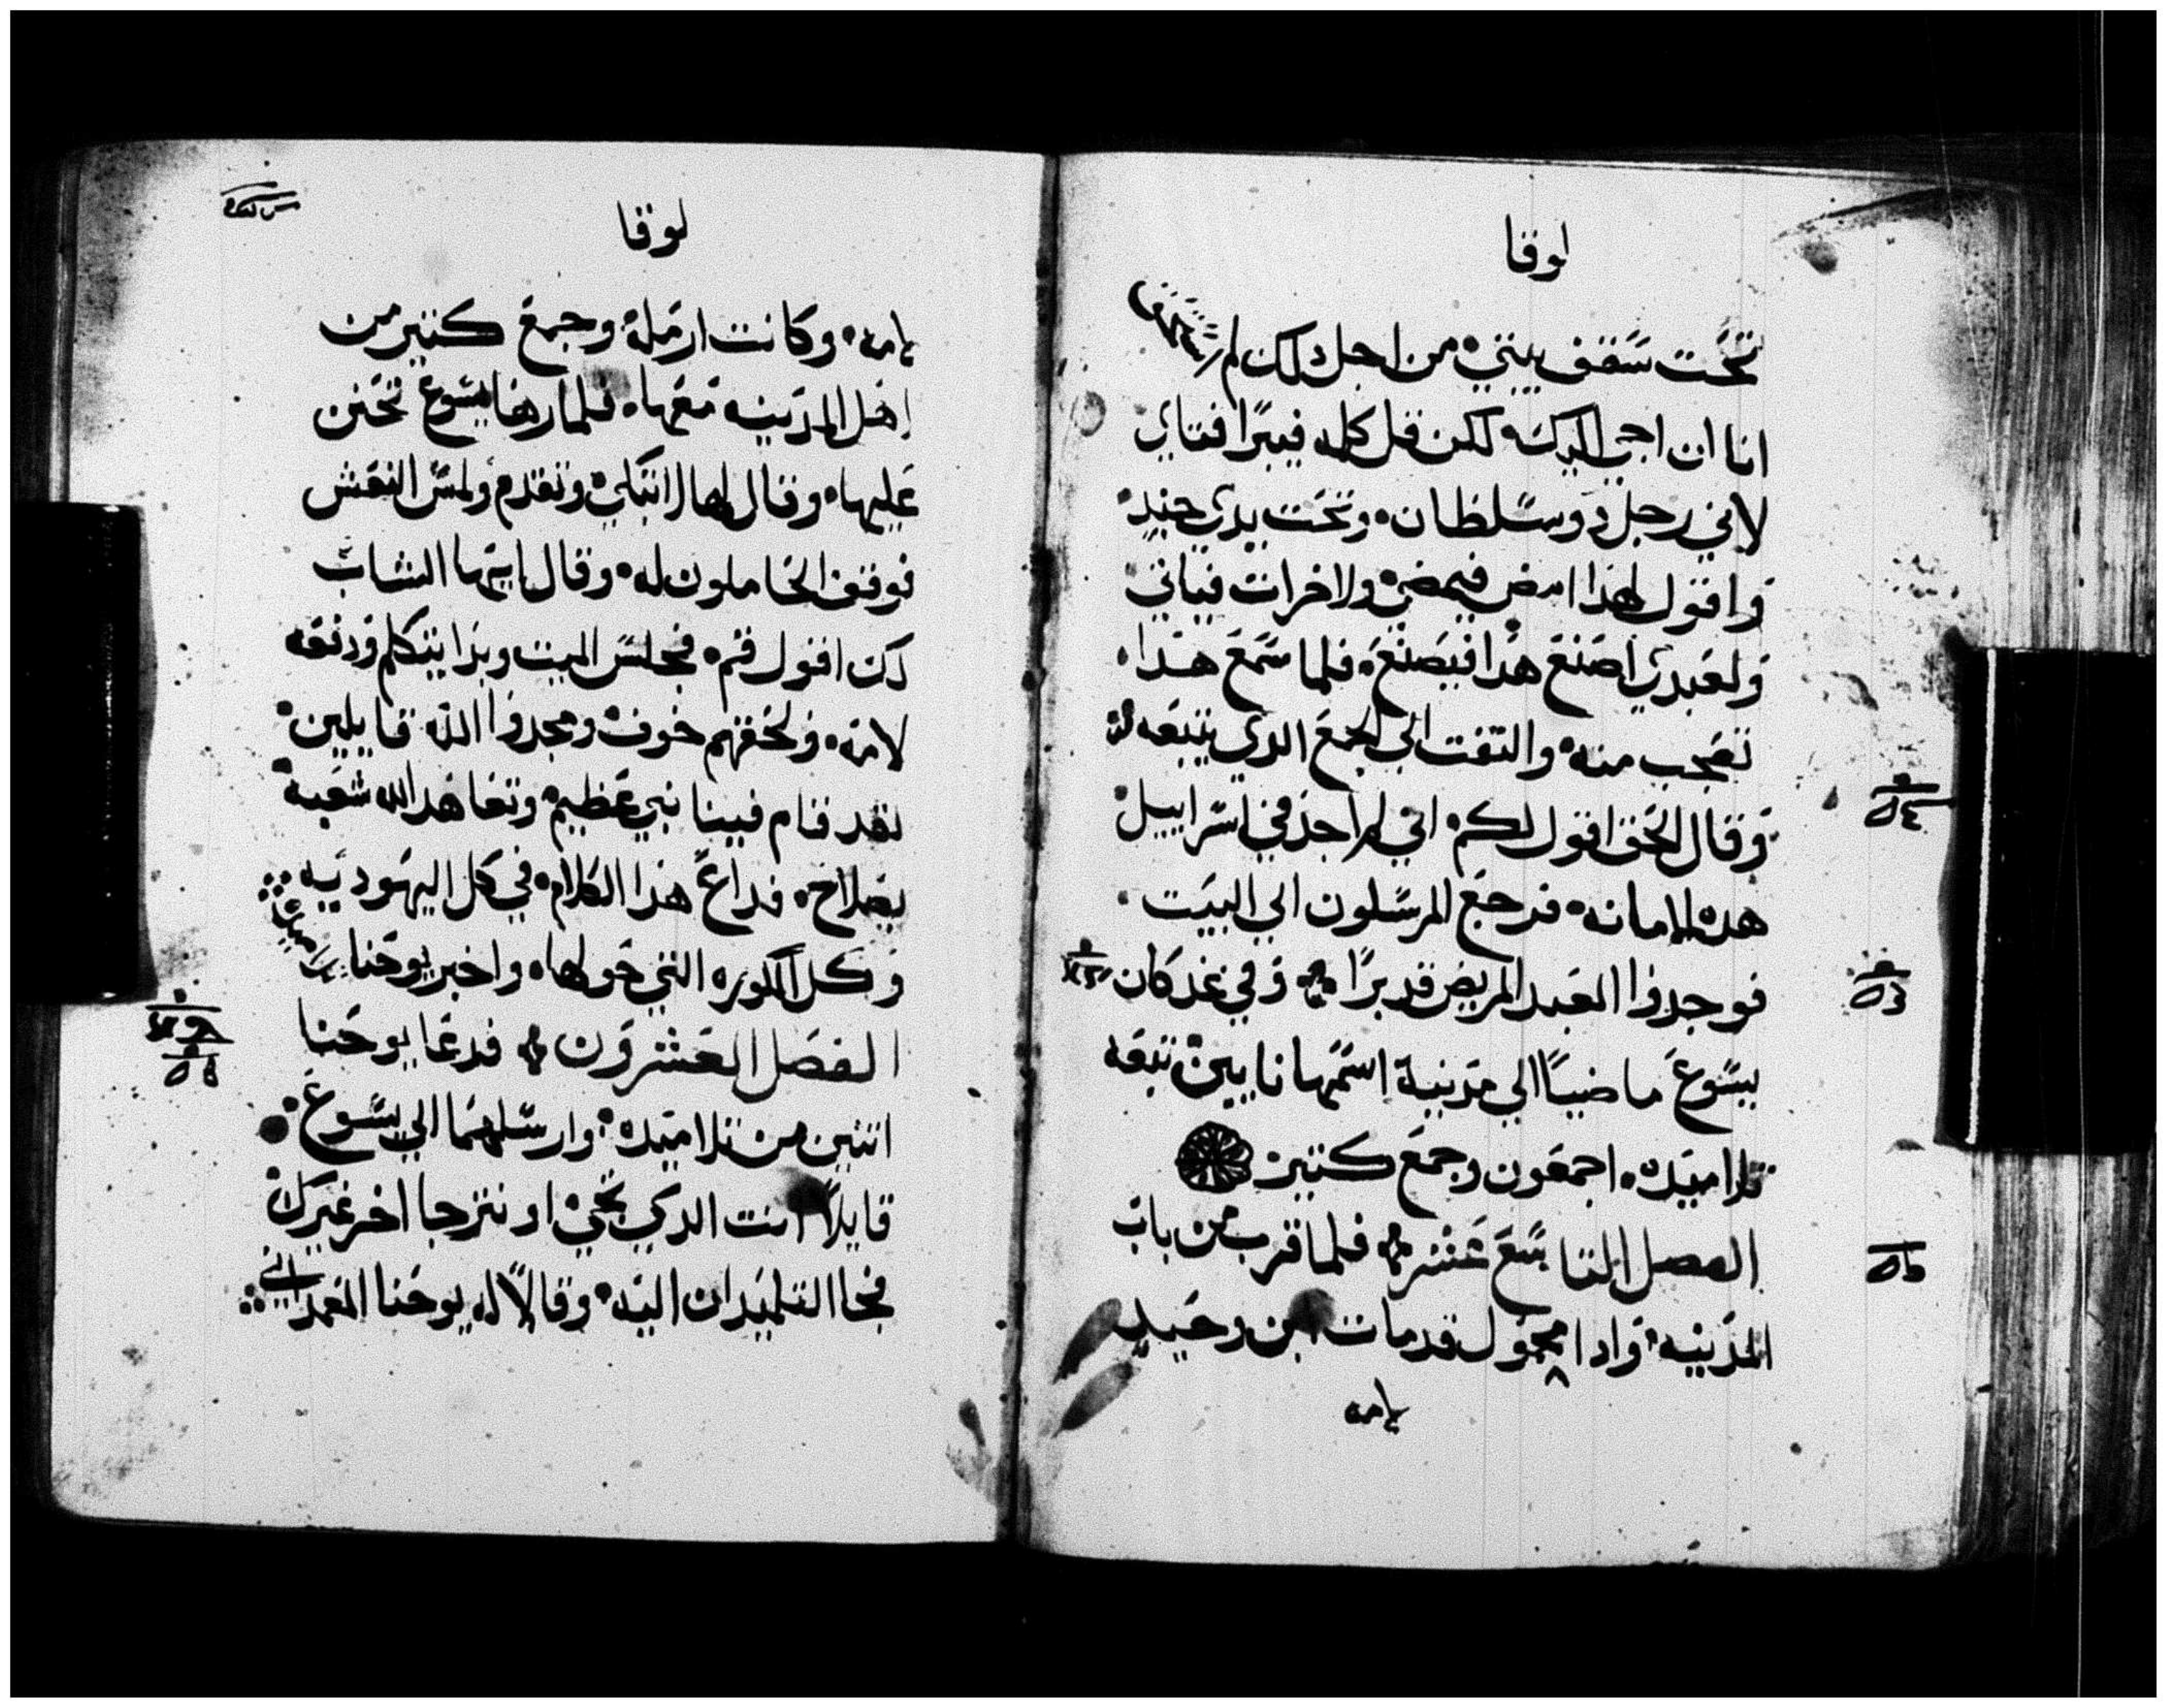 لوقا
تحت سقف بيتي من اجل دلك لم استحق
انا ان اجي اليك لكن قل كلمه فيبرا فتاي
لاني رجل دو سلطان وتحت يدي جند
واقول لهدا امض فيمضي ولاخر ات فياتي
ولعبدي اصنع هدا فيصنع فلما سمع هدا
تعجب منه والتفت الي الجمع الدي يتبعه
وقال الحق اقول لكم اني لم اجد في اسراييل
هده الامانه فرجع المرسلون الي البيت
فوجدوا العبد المريض قد برا وفي غد كان
يسوع ماضيا الي مدينة اسمها نايين تتبعه
تلاميده اجمعون وجمع كثير
الفصل التاسع عشر فلما قرب من باب
المدينه وادا محمول قد مات ابن وحيد
لامه
لوقا
لامه وكانت ارمله وجمع كثير من
اهل المدينه معها فلما راها يسوع تحنن
عليها وقال لها لا تبكي وتقدم ولمس النعش
فوقف الحاملون له وقال ايها الشاب
لك اقول قم فجلس الميت وبدا يتكلم ودفعه
لامه ولحقهم خوف ومجدوا الله قايلين
لقد قام فينا نبي عظيم وتعاهد الله شعبه
بصلاح فداع هدا الكلام في كل اليهوديه
وكل الكوره التي حولها واخبر يوحنا تلاميده
الفصل العشرون فدعا يوحنا
اثنين من تلاميده وارسلهما الي يسوع
قايلا انت الدي يجي او نترجا اخر غيرك
فجا التلميدان اليه وقالا له يوحنا المعمداني